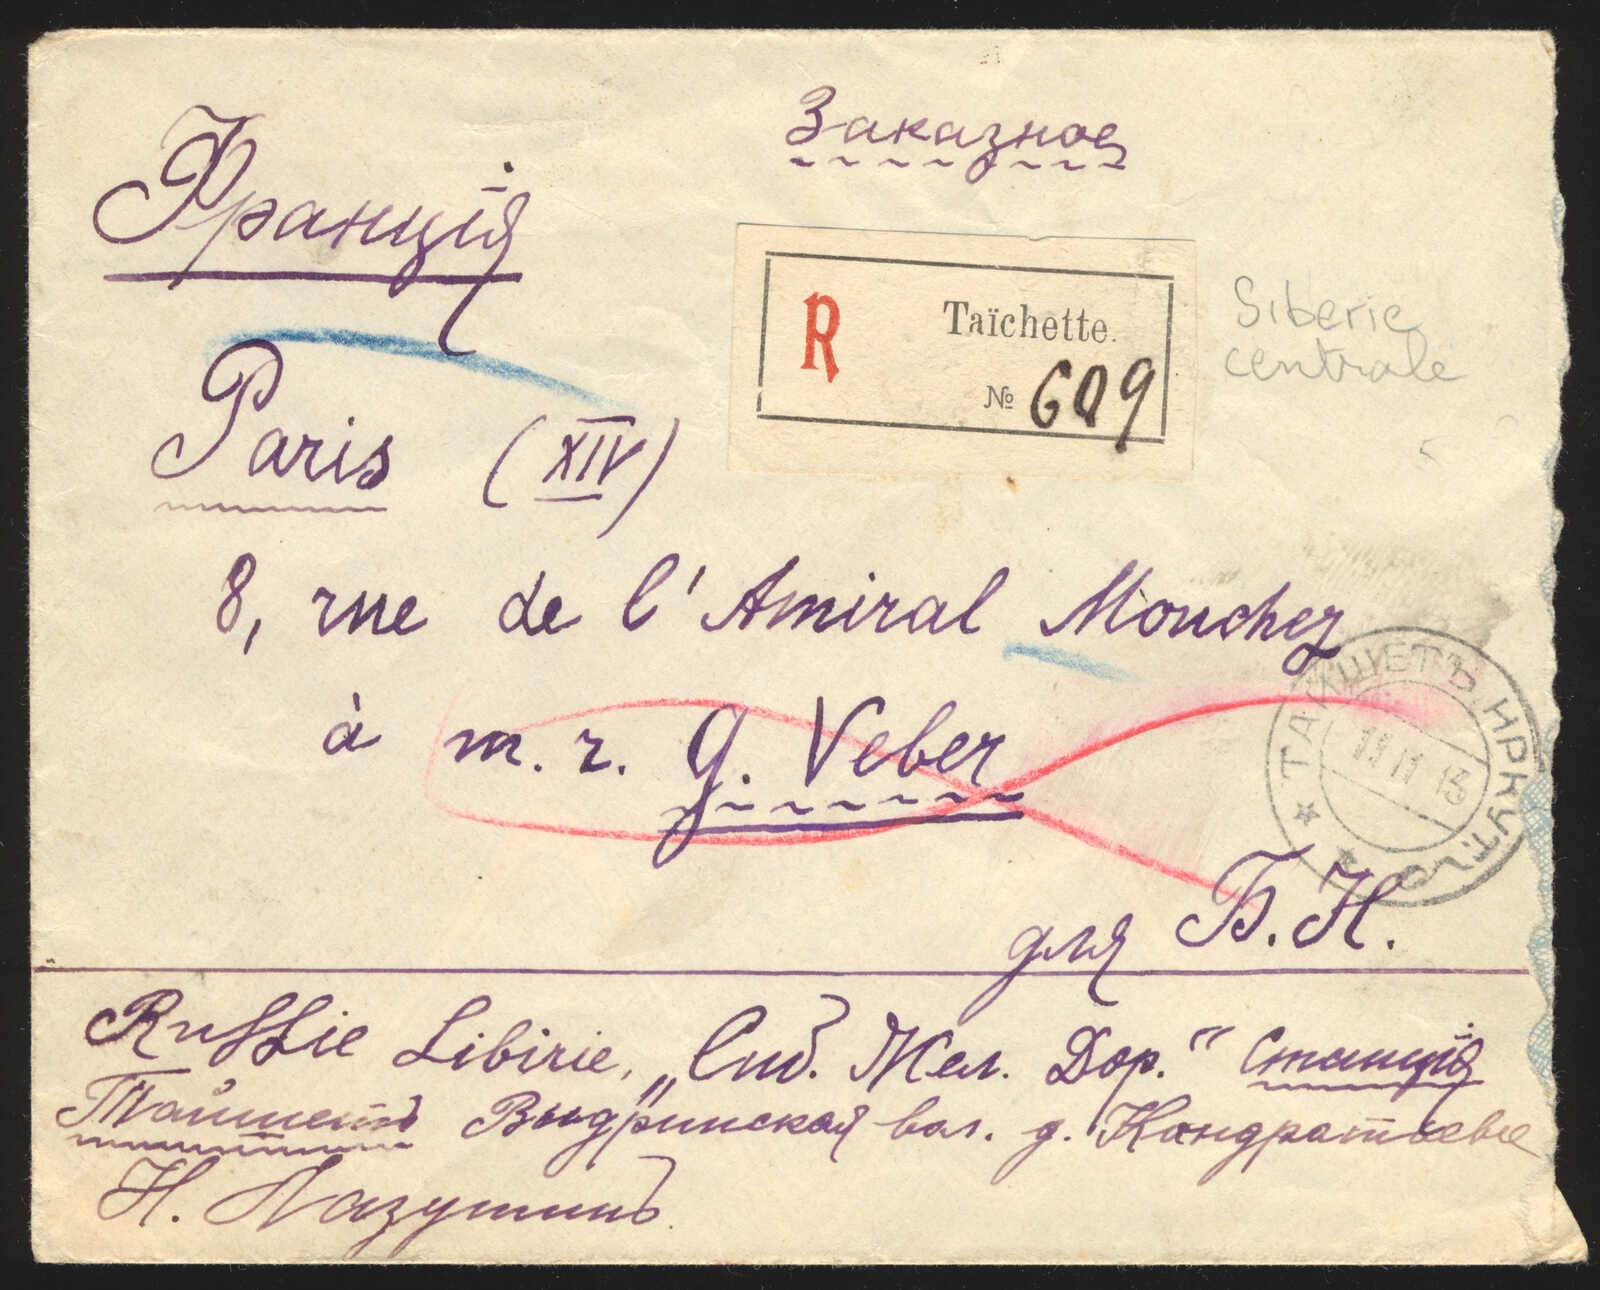 Заказное
Франція
R Taïchette.
№ 609
Siberie
centrale
Paris (XIV)
8, rue de l'Amiral Mouchez
à m. r. G. Veber
ТАЙШЕТЪ ИРКУТ.
11 11 13
для Б. Н.
Russie Sibirie, „Сиб. Жел. Дор.“ Станція
Тайшетъ Выдринская вол. д. Кондратьево
Н. Лазутинъ